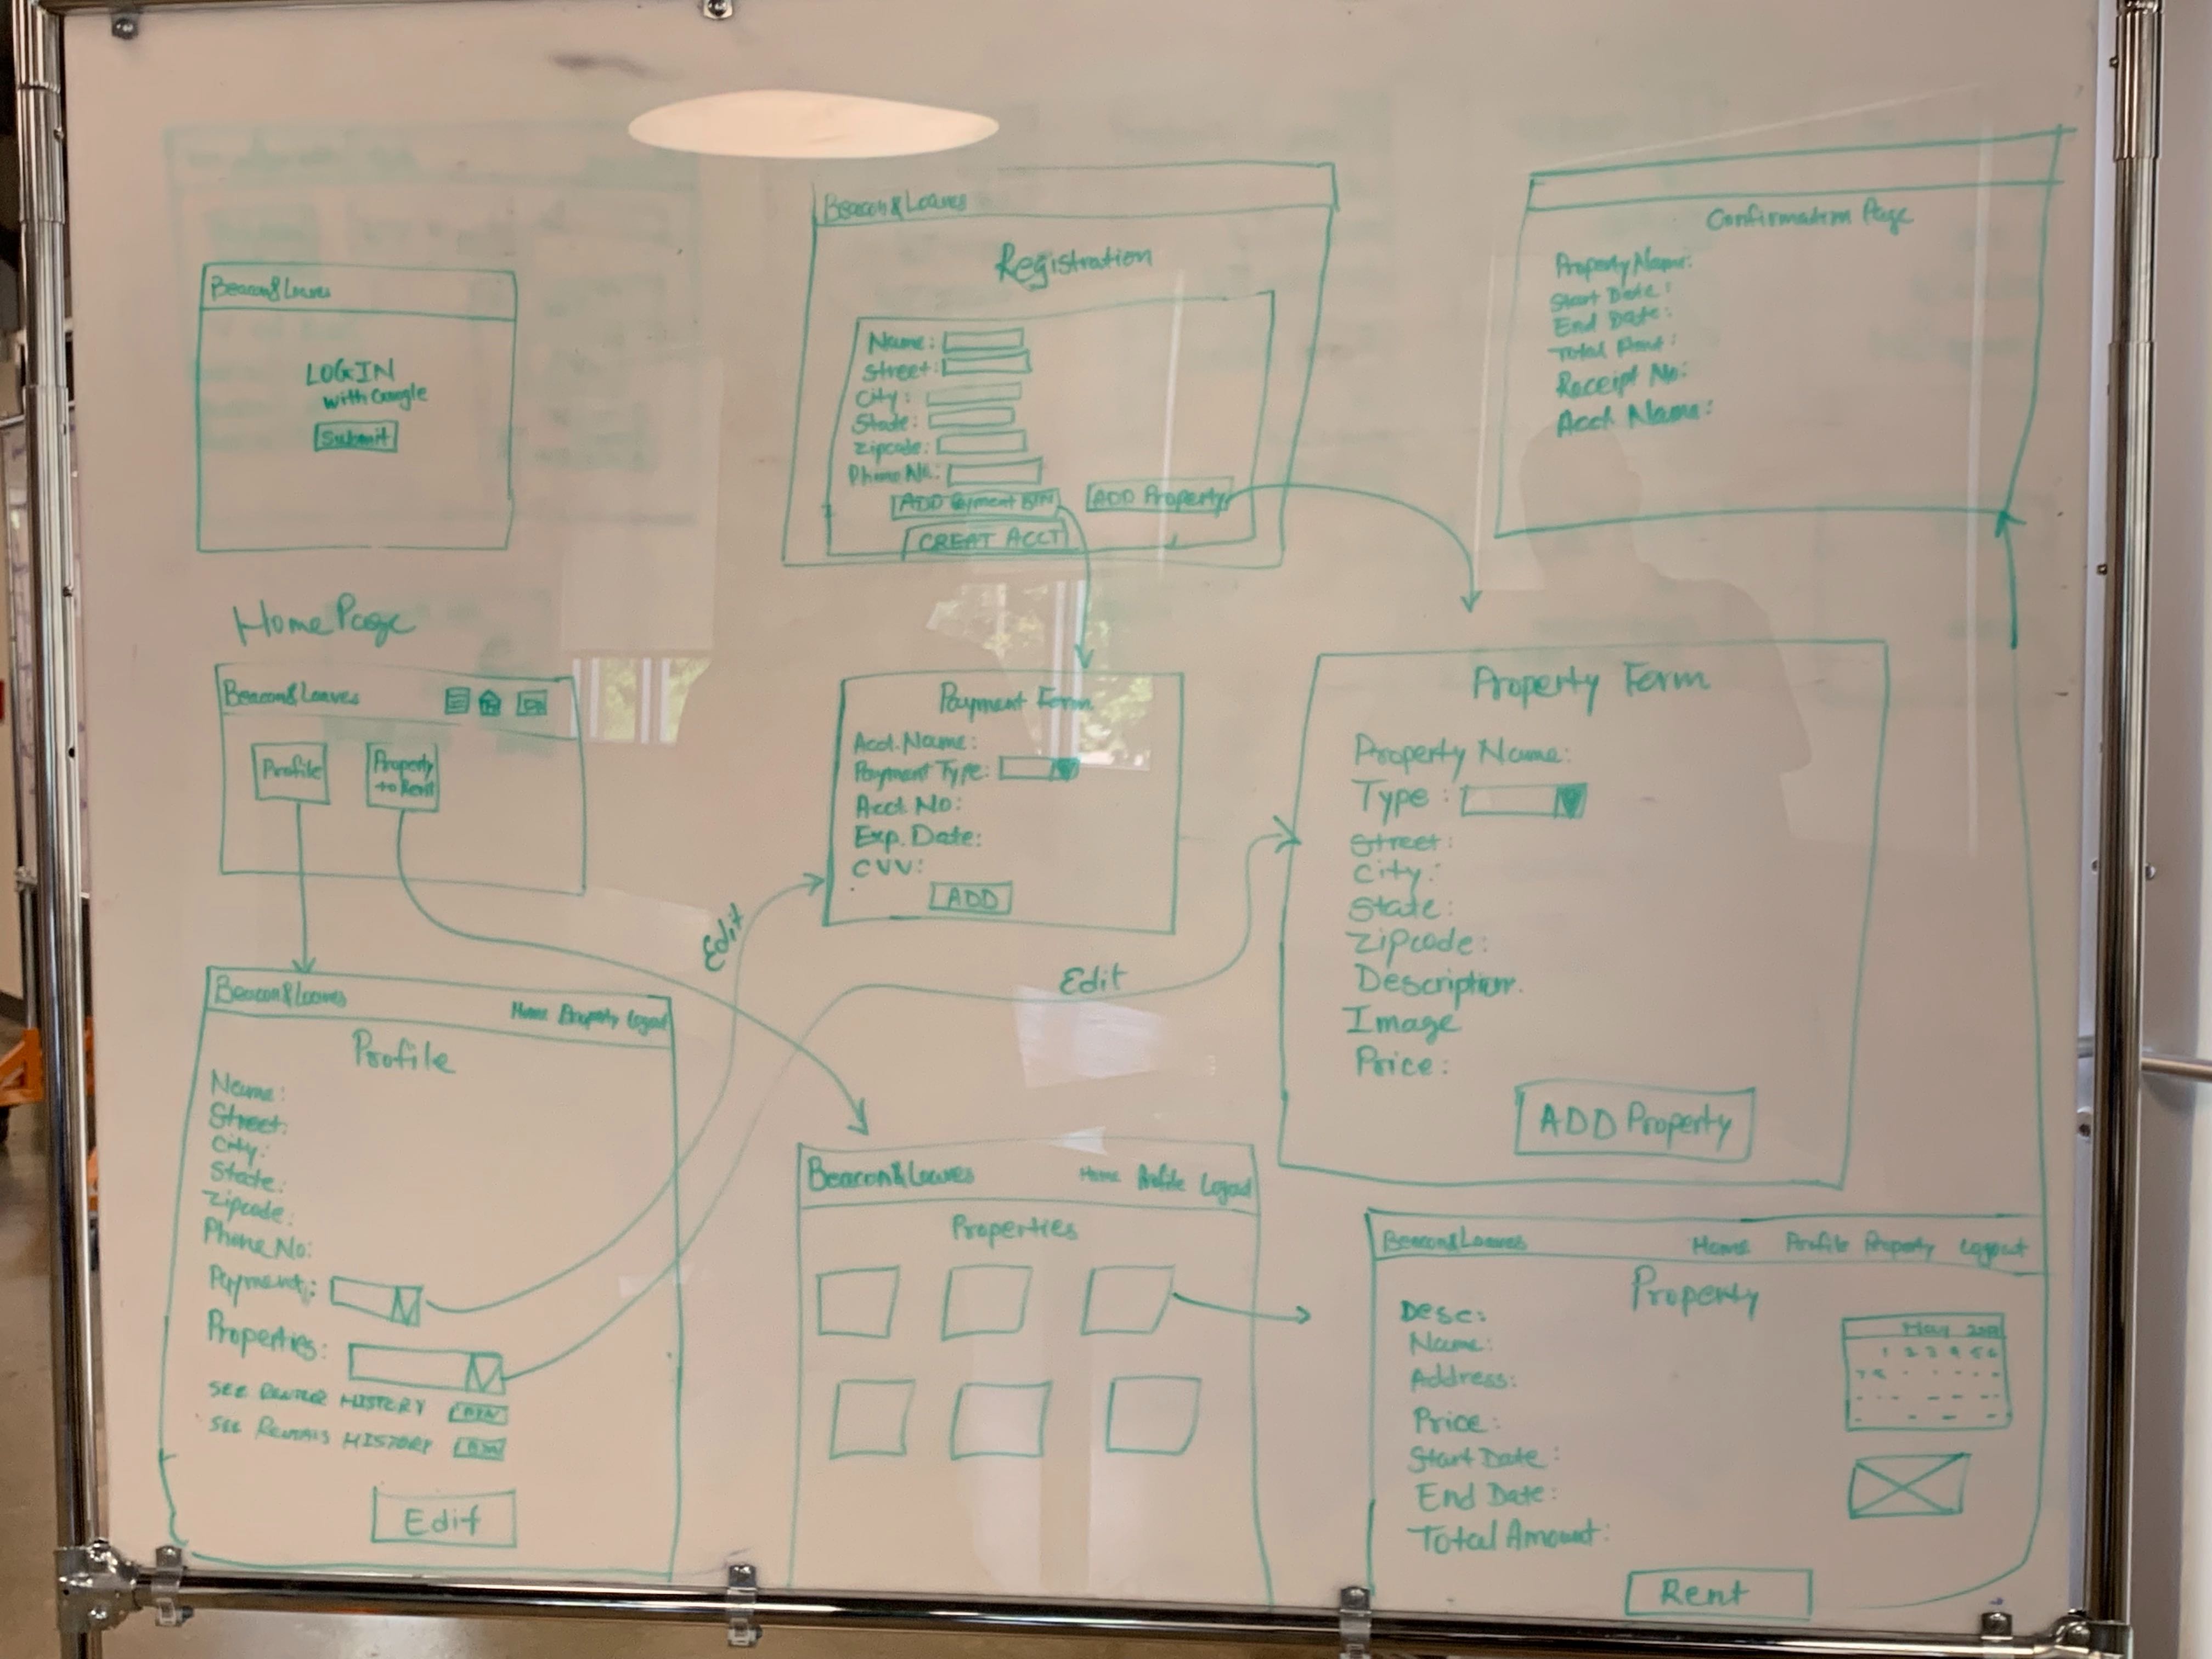 Beacon&Loaves
LOGIN
with Google
Submit
Beacon&Loaves
Registration
Name:
Street:
City:
State:
Zipcode:
Phone No.:
ADD Payment BTN
ADD Property
CREAT ACCT
Confirmation Page
Property Name:
Start Date:
End Date:
Total Rent:
Receipt No:
Acct Name:
Home Page
Beacon&Loaves
Profile
Property
to Rent
Payment Form
Acct. Name:
Payment Type:
Acct. No:
Exp. Date:
CVV:
ADD
Property Form
Property Name:
Type:
Street:
City:
State:
Zipcode:
Description:
Image
Price:
ADD Property
Edit
Edit
Beacon&Loaves
Home Property Logout
Profile
Name:
Street:
City:
State:
Zipcode:
Phone No:
Payment:
Properties:
SEE RENTER HISTORY BTN
SEE RENTALS HISTORY BTN
Edit
Beacon&Loaves Home Profile Logout
Properties
Beacon&Loaves Home Profile Property Logout
Property
Desc:
Name:
Address:
Price:
Start Date:
End Date:
Total Amount:
May
1 2 3 4 5 6
7 8
Rent